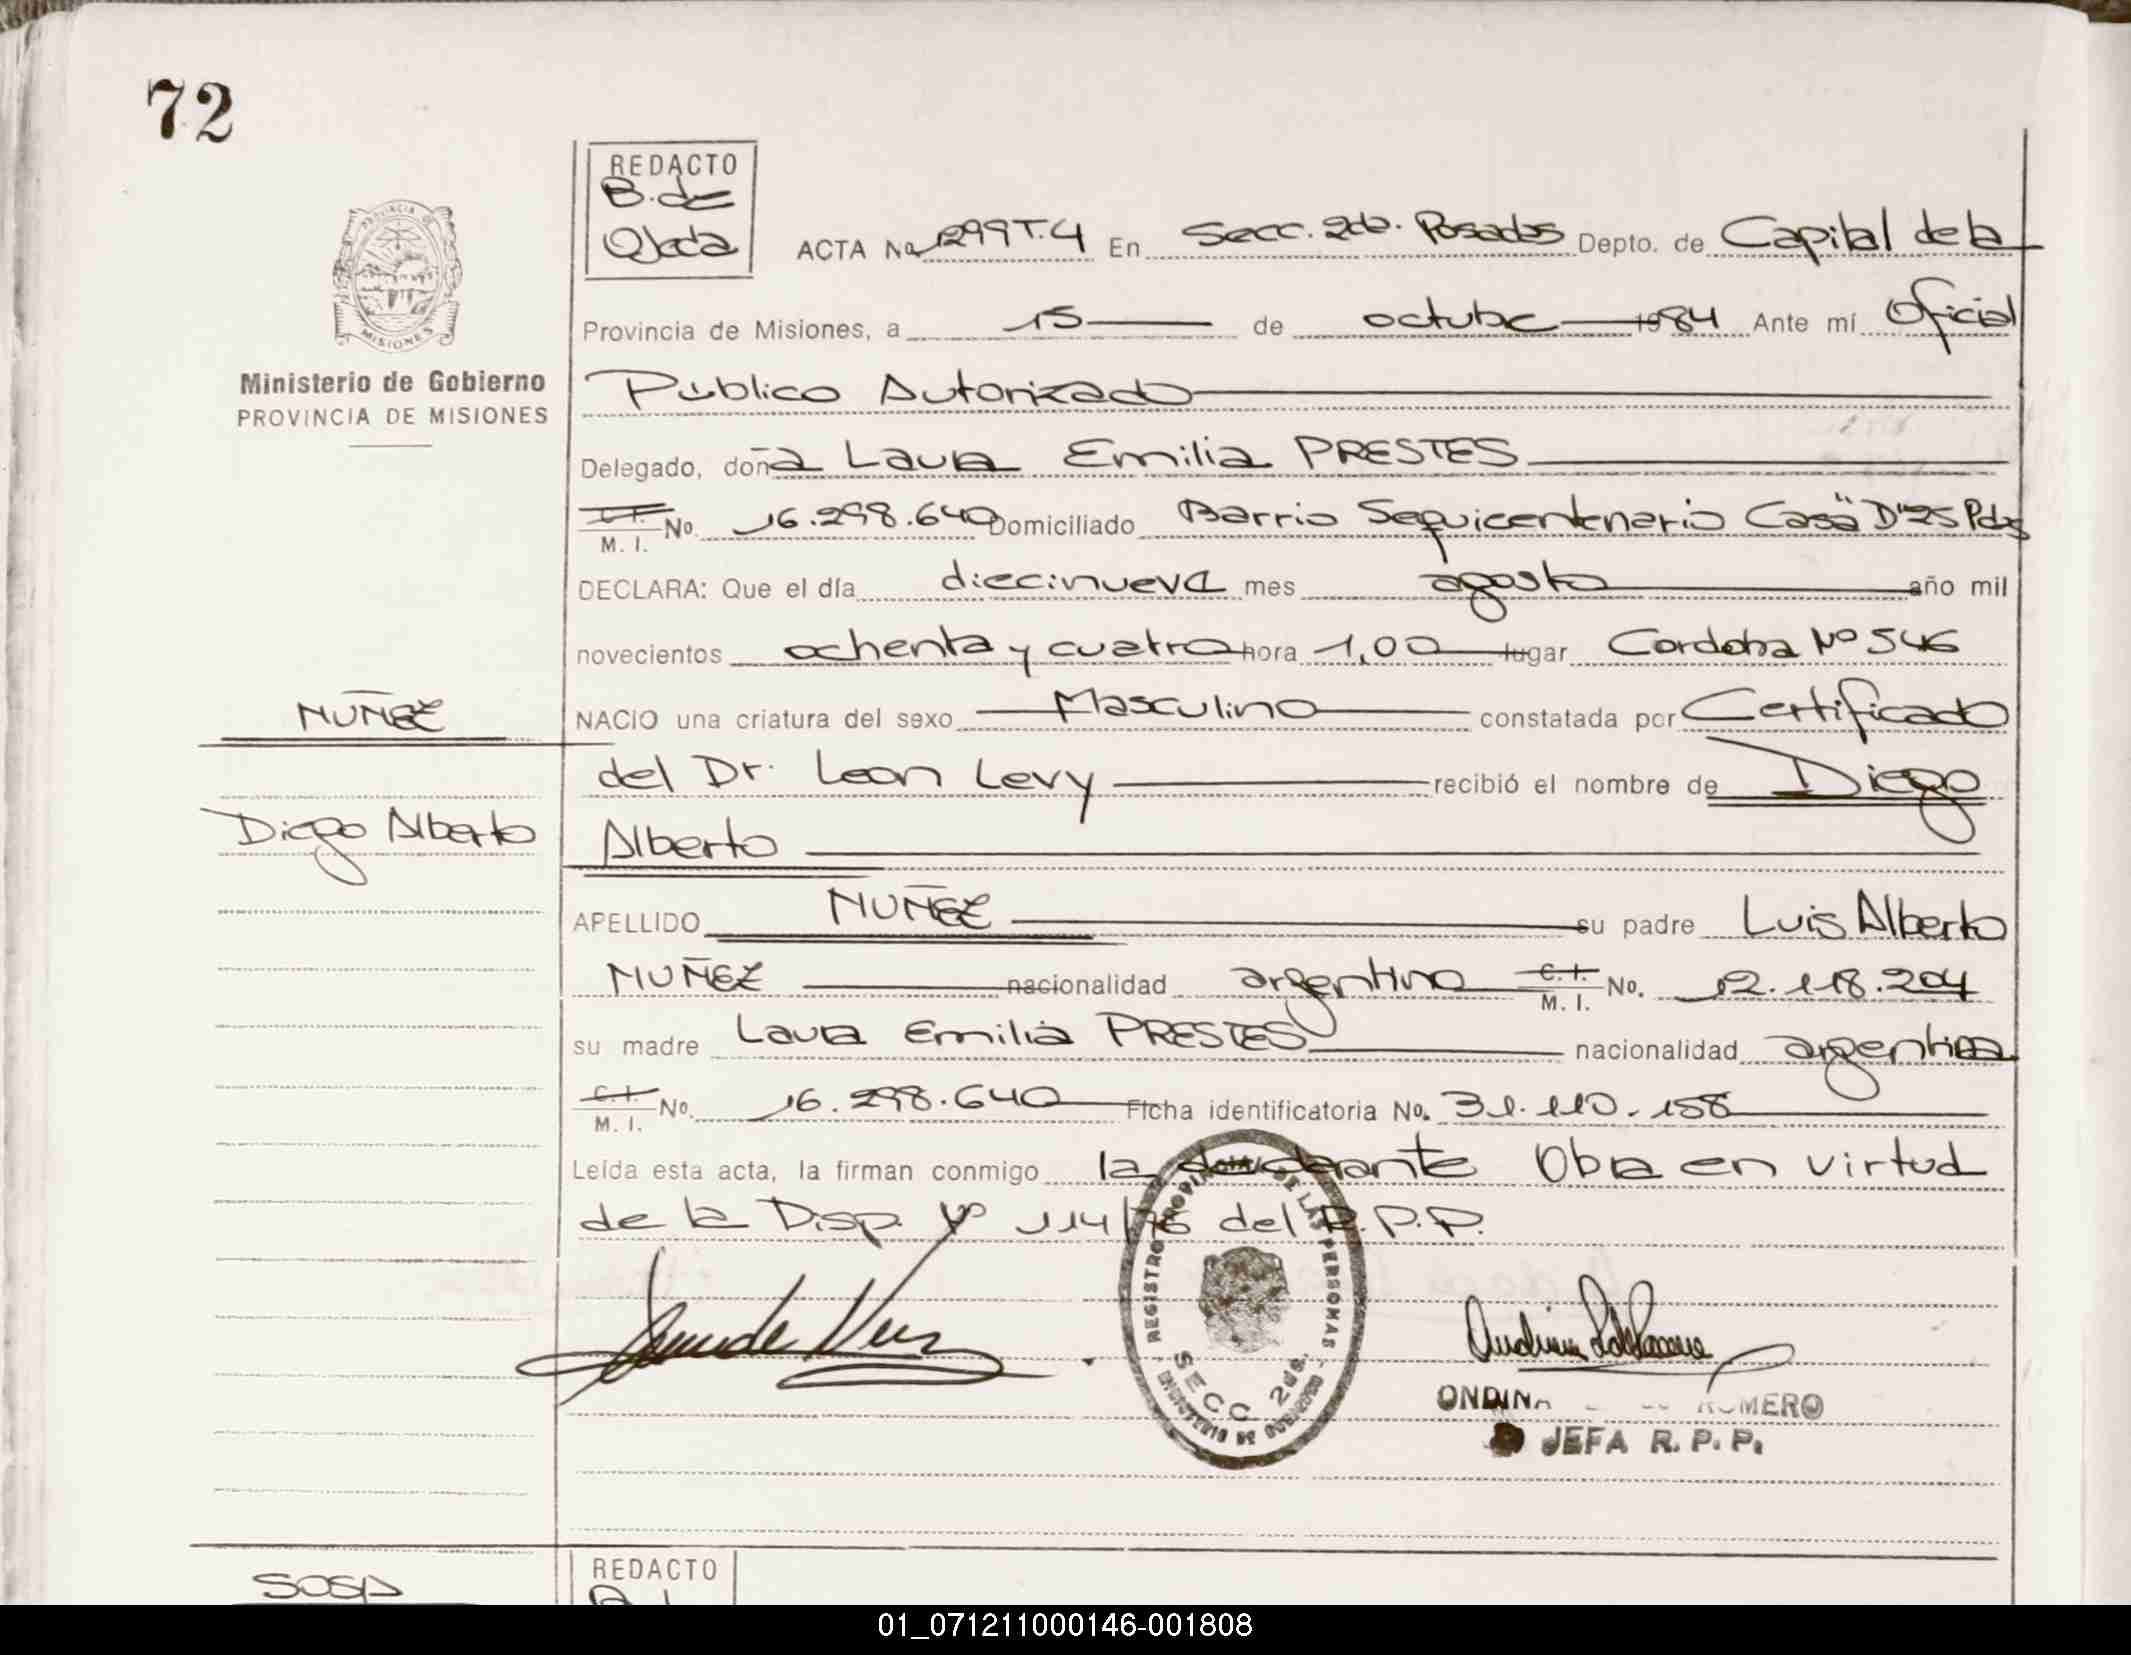 72
PROVINCIA DE
MISIONES
Ministerio de Gobierno
PROVINCIA DE MISIONES
REDACTO
B. de
Ojeda
ACTA No 1299 T.4 En Secc. 2da. Posadas Depto. de Capital de la
Provincia de Misiones, a 15 de octubre 1984 Ante mí Oficial
Público Autorizado
Delegado, doña Laura Emilia PRESTES
C.I. M. I. No. 16.298.640 Domiciliado Barrio Sequicentenario Casa "D" 25 Pdas
DECLARA: Que el día diecinueve mes agosto año mil
novecientos ochenta y cuatro hora 1,00 lugar Cordoba Nº 546
NACIO una criatura del sexo Masculino constatada por Certificado
del Dr. Leon Levy recibió el nombre de Diego
Alberto
APELLIDO NUÑEZ su padre Luis Alberto
NUÑEZ nacionalidad argentino C.I. M. I. No. 12.118.204
su madre Laura Emilia PRESTES nacionalidad argentina
C.I. M. I. No. 16.298.640 Ficha identificatoria No. 31.110.158
Leída esta acta, la firman conmigo la declarante Obra en virtud
de la Disp. Nº 114/76 del R.P.P.
NUÑEZ
Diego Alberto
REGISTRO PROVINCIAL DE LAS PERSONAS
SECC 2da.
MINISTERIO DE GOBIERNO
ONDINA ROMERO
JEFA R. P. P.
SOSA
REDACTO
01_071211000146-001808